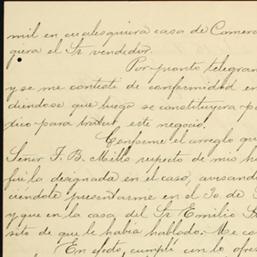 mil en cualesquiera casa de Comer
quiera el Sr vendedor.
Por pronto telegra
y se me contestó de conformidad en
diéndose que luego se constituyera pa
xico para tratar este negocio.
Conforme el arreglo que
Señor F. B. Mello respecto de mis h
fué la designada en el caso, avisando
ciéndole presentarme en el 30. de
y que en la casa del Sr Emilio B
sito de que le había hablado. Me co
En efecto, cumplí con lo ofre